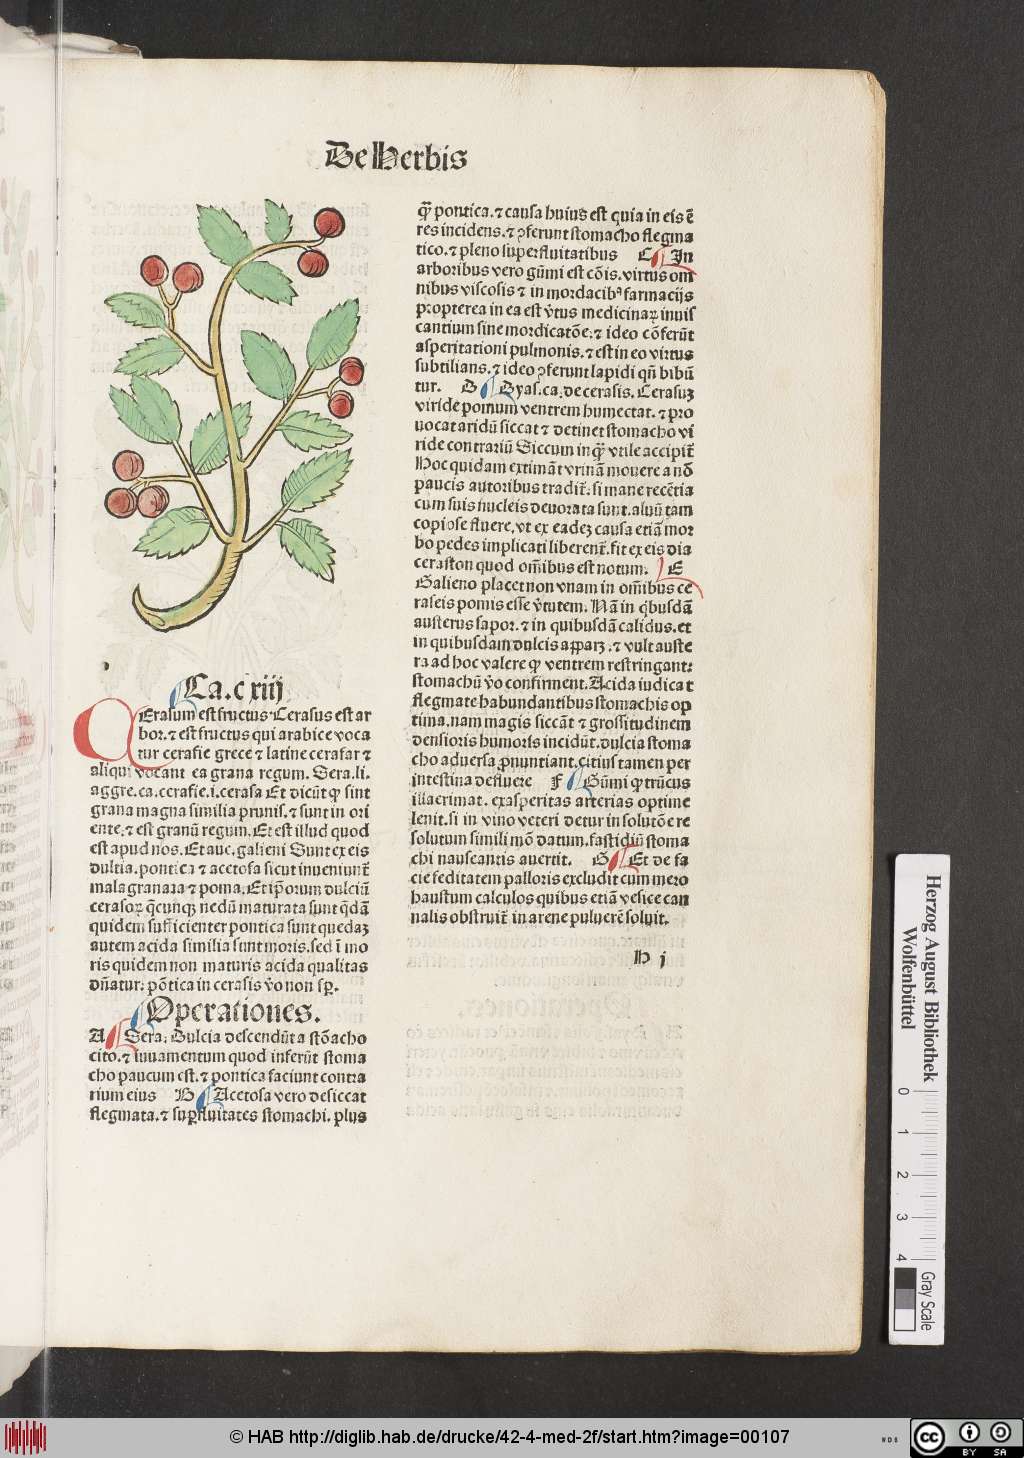 De Herbis
Ca.c xiij
Erasum est fructus Cerasus est ar
bor.⁊ est fructus qui arabice voca
tur cerasie grece ⁊ latine cerasar ⁊
aliqui vocant ea grana regum. Sera.li.
aggre.ca.cerasie.i.cerasa Et dicūt ꝙ sint
grana magna similia prunis.⁊ sunt in ori
ente.⁊ est granū regum. Et est illud quod
est apud nos. Et auc. galieni Sunt ex eis
dultia.pontica ⁊ acetosa sicut inueniunt̄
mala granata ⁊ poma. Et ip̄orum dulciū
cerasoꝝ q̄cunqꝫ nedū maturata sunt q̄dā
quidem sufficienter pontica sunt quedaꝫ
autem acida similia sunt moris.sed ī mo
ris quidem non maturis acida qualitas
dn̄atur. pōtica in cerasis v̄o non sꝑ.
Operationes.
A Sera. Dulcia descendūt a stōacho
cito.⁊ iuuamentum quod inferūt stoma
cho paucum est.⁊ pontica faciunt contra
rium eius B Acetosa vero desiccat
flegmata.⁊ suꝑfluitates stomachi. plus
ꝙ̄ pontica.⁊ causa huius est quia in eis ē
res incidens.⁊ ꝯferunt stomacho flegma
tico.⁊ pleno superfluitatibus C In
arboribus vero gūmi est cōis.virtus om
nibus viscosis ⁊ in mordacibꝰ farmacijs
propterea in ea est v̄tus medicinaꝝ inuis
cantium sine mordicatōe:⁊ ideo cōferūt
asperitationi pulmonis.⁊ est in eo virtus
subtilians.⁊ ideo ꝯferunt lapidi qn̄ bibū
tur. D Dyas.ca.de cerasis. Cerasuꝫ
viride pomum ventrem humectat.⁊ pro
uocat aridū siccat ⁊ detinet stomacho vi
ride contrariū Siccum inqꝫ̄ vtile accipit̄
Hoc quidam extimāt vrinā mouere a nō
paucis autoribus tradit̄.si mane recētia
cum suis nucleis deuorata sunt.aluū tam
copiose fluere.vt ex eadeꝫ causa etiā mor
bo pedes implicati liberent̄.fit ex eis dia
ceraston quod om̄ibus est notum. E
Galieno placet non vnam in om̄ibus ce
raseis pomis esse v̄tutem. Nā in q̇busdā
austerus sapor.⁊ in quibusdā calidus.et
in quibusdam dulcis apparꝫ.⁊ vult auste
ra ad hoc valere ꝙ ventrem restringant:
stomachū v̄o confirment. Acida iudicat
flegmate habundantibus stomachis op
tima.nam magis siccāt ⁊ grossitudinem
densioris humoris incidūt.dulcia stoma
cho aduersa ꝓnuntiant.citius tamen per
intestina defluere F Gūmi ꝙ trūcus
illacrimat. exasperitas arterias optime
lenit.si in vino veteri detur in solutōe re
solutum simili mō datum.fastidiū stoma
chi nauseantis auertit. G Et de fa
cie feditatem palloris excludit cum mero
haustum calculos quibus etiā vesice can
nalis obstruit̄ in arene puluerē soluit.
H j
Herzog August Bibliothek
Wolfenbüttel
0 1 2 3 4
Gray Scale
© HAB http://diglib.hab.de/drucke/42-4-med-2f/start.htm?image=00107
WDB
cc BY SA